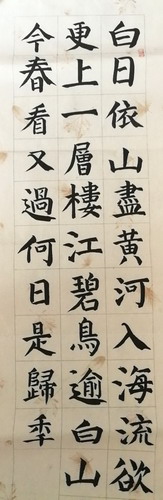 白日依山盡黃河入海流欲
更上一層樓江碧鳥逾白山
今春看又過何日是歸季